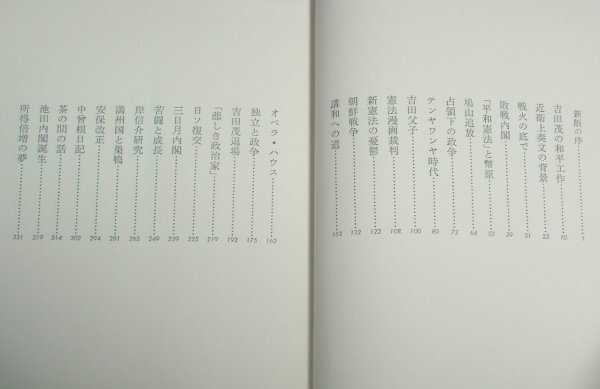 新版の序……1
吉田茂の和平工作……10
近衛上奏文の背景……22
戦火の底で……31
敗戦内閣……39
「平和憲法」と幣原……52
鳩山追放……64
占領下の政争……72
テンヤワンヤ時代……89
吉田父子……100
憲法漫画裁判……108
新憲法の憂鬱……122
朝鮮戦争……132
講和への道……153
オペラ・ハウス……162
独立と政争……175
吉田茂退場……192
「悲しき政治家」……219
日ソ復交……225
三日月内閣……239
苦闘と成長……249
岸信介研究……265
満州国と巣鴨……281
安保改正……294
中曽根日記……302
茶の間の話……314
池田内閣誕生……319
所得倍増の夢……331